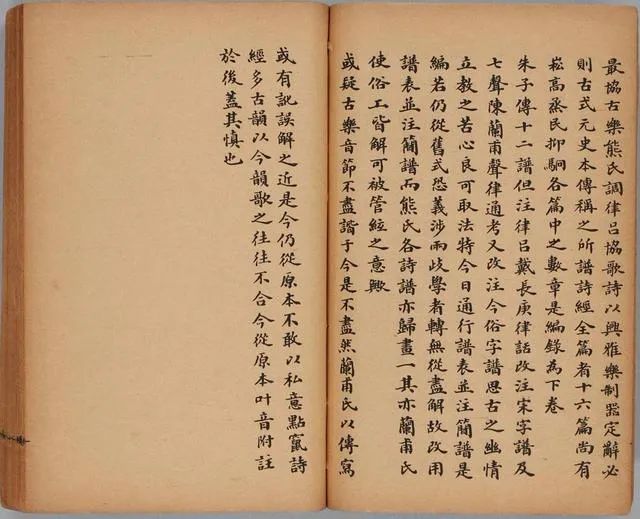 最協古樂熊氏調律呂協歌詩以興雅樂制器定辭必
則古式元史本傳稱之所譜詩經全篇者十六篇尚有
崧高烝民抑駉各篇中之數章是編錄為下卷
朱子傳十二譜但注律呂戴長庚律話改注宋字譜及
七聲陳蘭甫聲律通考又改注今俗字譜思古之幽情
立教之苦心良可取法特今日通行譜表並注簡譜是
編若仍從舊式恐義涉兩歧學者轉無從盡解故改用
譜表並注簡譜而熊氏各詩譜亦歸畫一其亦蘭甫氏
使俗工皆解可被管絃之意歟
或疑古樂音節不盡諧于今是不盡然蘭甫氏以傳寫
或有訛誤解之近是今仍從原本不敢以私意點竄詩
經多古韻以今韻歌之往往不合今從原本叶音附註
於後蓋其慎也